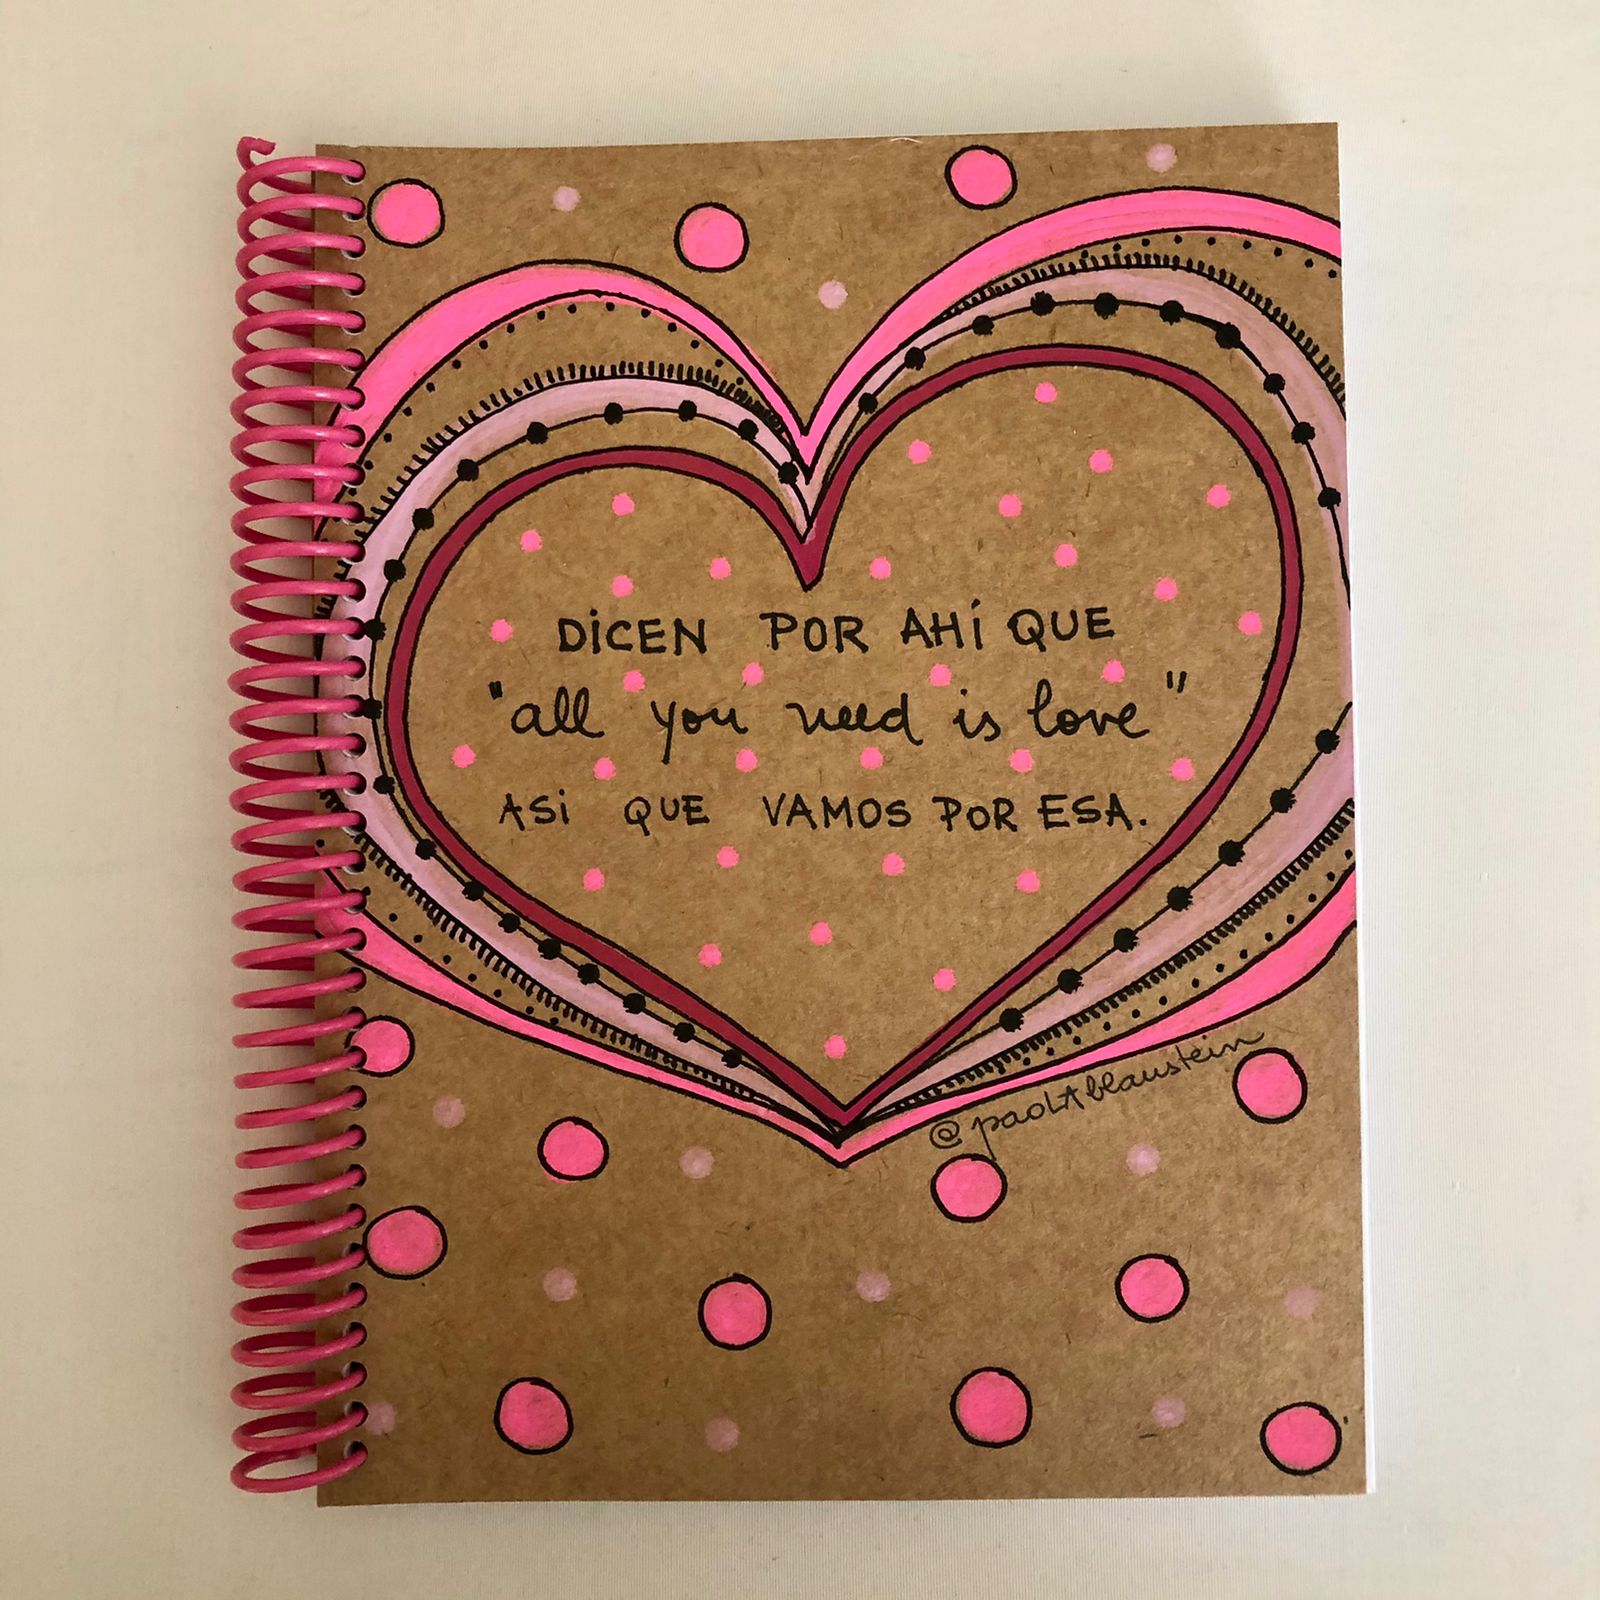 DiCEN POR AHÍ QUE
"all you need is love"
ASi QUE VAMOS POR ESA.
@paolAblaustein